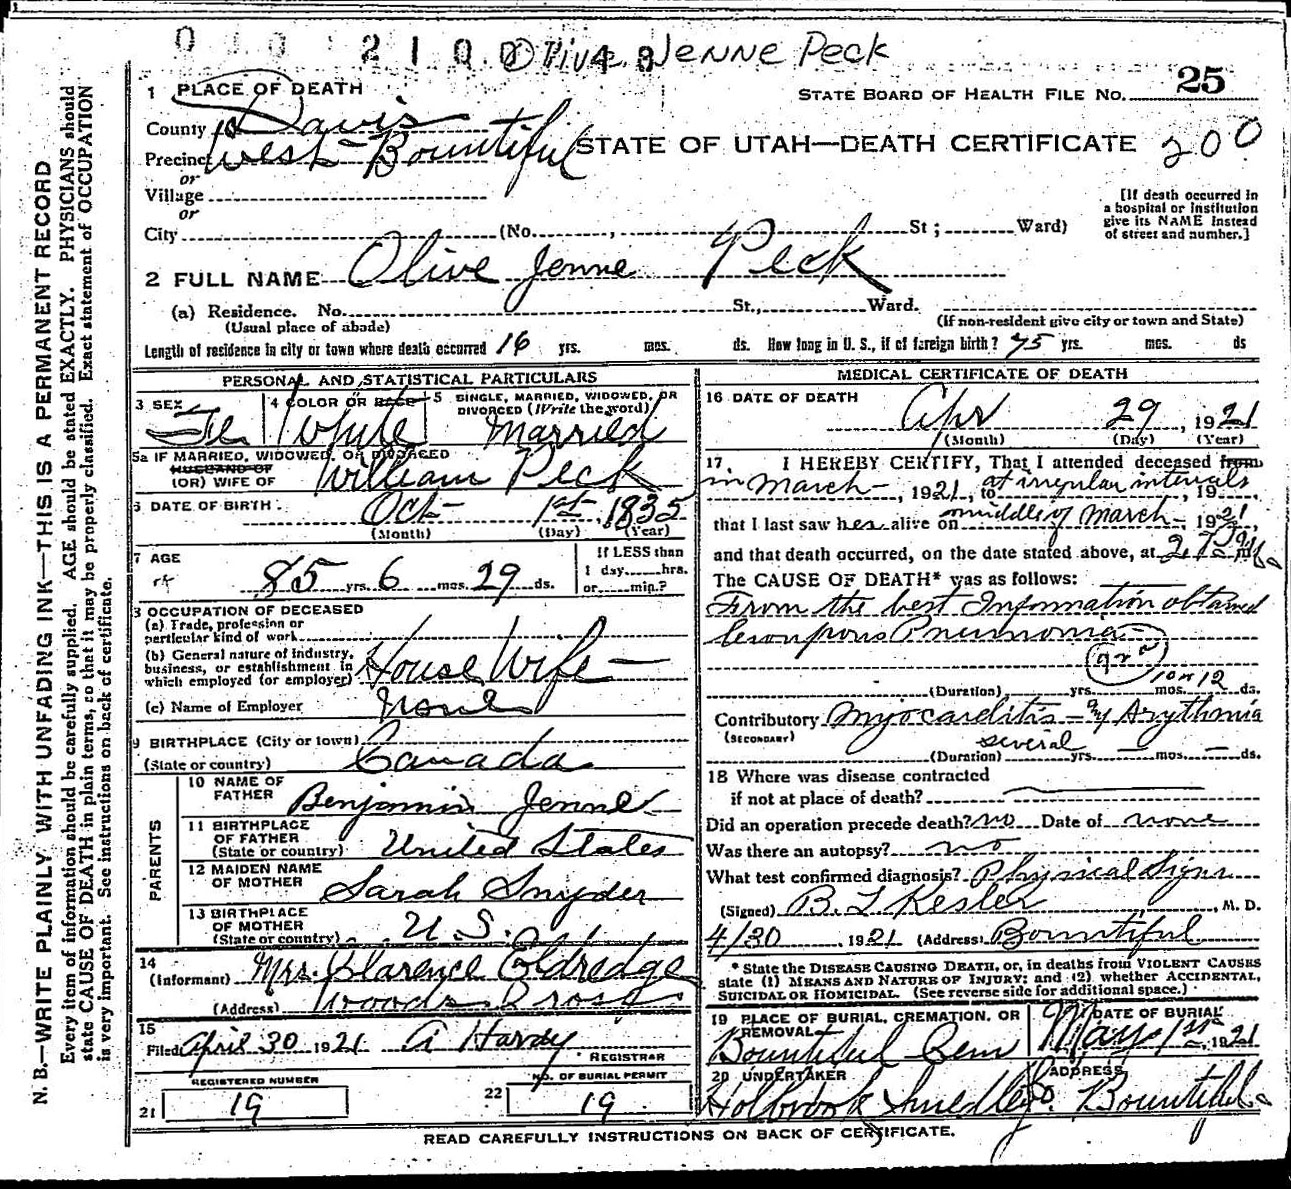 0 1 0 2 1 0 0 4 8 Olive Jenne Peck
1 PLACE OF DEATH
STATE BOARD OF HEALTH FILE NO. 25
County of Davis
Precinct West Bountiful
STATE OF UTAH—DEATH CERTIFICATE 200
or
Village
or
[If death occurred in
a hospital or institution
give its NAME instead
of street and number.]
City (No. , St ; Ward)
2 FULL NAME Olive Jenne Peck
(a) Residence. No. St., Ward.
(Usual place of abade) (If non-resident give city or town and State)
Length of residence in city or town where death occurred 16 yrs. mos. ds. How long in U. S., if of foreign birth? 75 yrs. mos. ds
PERSONAL AND STATISTICAL PARTICULARS
3 SEX Fe
4 COLOR OR RACE White
5 SINGLE, MARRIED, WIDOWED, OR
DIVORCED (Write the word) Married
5a IF MARRIED, WIDOWED, OR DIVORCED
HUSBAND OF
(OR) WIFE OF William Peck
6 DATE OF BIRTH Oct 1st, 1835
(Month) (Day) (Year)
7 AGE
85 yrs. 6 mos. 29 ds.
If LESS than
1 day hrs.
or min.?
8 OCCUPATION OF DECEASED
(a) Trade, profession or
particular kind of work
(b) General nature of industry,
business, or establishment in
which employed (or employer) House Wife
(c) Name of Employer
9 BIRTHPLACE (City or town)
(State or country) Canada
PARENTS
10 NAME OF
FATHER Benjamin Jenne
11 BIRTHPLACE
OF FATHER
(State or country) United States
12 MAIDEN NAME
OF MOTHER Sarah Snyder
13 BIRTHPLACE
OF MOTHER
(State or country) U. S.
14
(Informant) Mrs. Clarence Eldredge
(Address) Woods Cross
15
Filed April 30 1921 A Hardy
REGISTRAR
REGISTERED NUMBER
21 19
NO. OF BURIAL PERMIT
22 19
MEDICAL CERTIFICATE OF DEATH
16 DATE OF DEATH
Apr 29, 1921
(Month) (Day) (Year)
17. I HEREBY CERTIFY, That I attended deceased from
in March, 1921, to at irregular intervals, 19
that I last saw her alive on middle of March 1921,
and that death occurred, on the date stated above, at m.
The CAUSE OF DEATH* was as follows:
From the best Information obtained
Croupous Pneumonia
(Duration) yrs. mos. 10 or 12 ds.
Contributory Myocarditis Arythmia
(SECONDARY)
(Duration) several yrs. mos. ds.
18 Where was disease contracted
if not at place of death?
Did an operation precede death? no Date of none
Was there an autopsy? no
What test confirmed diagnosis? Physical Signs
(Signed) B. L Kesler, M. D.
4/30, 1921 (Address) Bountiful
* State the DISEASE CAUSING DEATH, or, in deaths from VIOLENT CAUSES
state (1) MEANS AND NATURE OF INJURY; and (2) whether ACCIDENTAL,
SUICIDAL OR HOMICIDAL. (See reverse side for additional space.)
19 PLACE OF BURIAL, CREMATION, OR
REMOVAL
Bountiful Cem
DATE OF BURIAL
May 1st, 1921
20 UNDERTAKER
Holbrook Smedley Co.
ADDRESS
Bountiful
READ CAREFULLY INSTRUCTIONS ON BACK OF CERTIFICATE.
N. B.—WRITE PLAINLY WITH UNFADING INK—THIS IS A PERMANENT RECORD
Every item of information should be carefully supplied. AGE should be stated EXACTLY. PHYSICIANS should
state CAUSE OF DEATH in plain terms, so that it may be properly classified. Exact statement of OCCUPATION
is very important. See instructions on back of certificate.